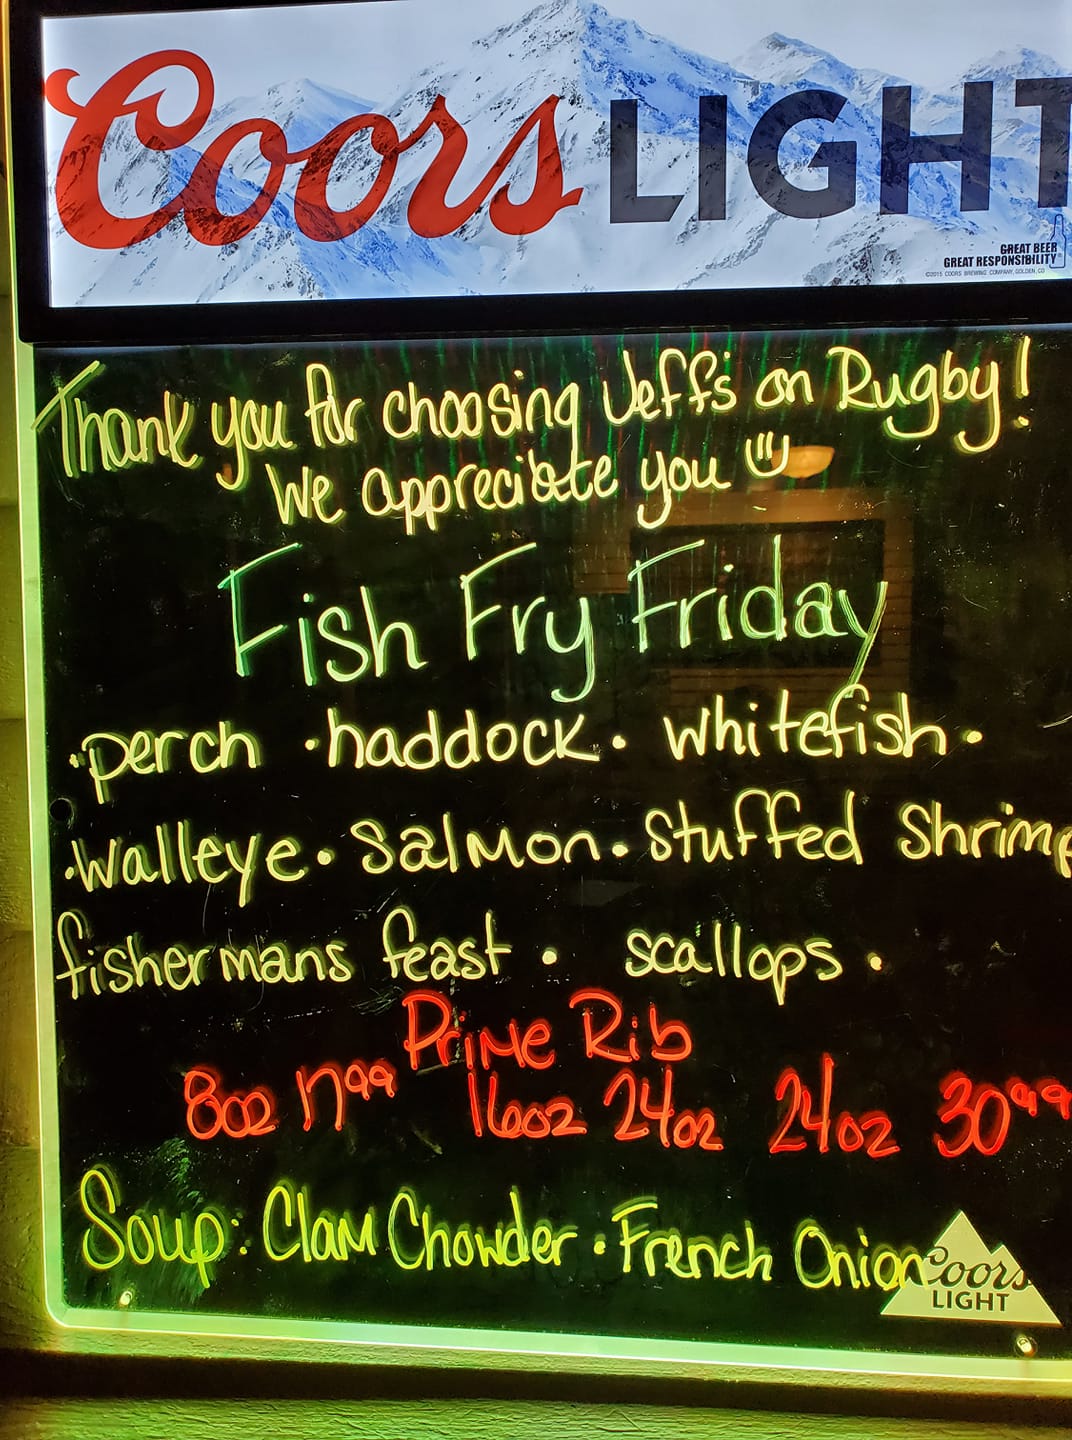 Coors LIGHT
GREAT BEER
GREAT RESPONSIBILITY®
©2015 COORS BREWING COMPANY, GOLDEN, CO
Thank you for choosing Jeff's on Rugby!
We appreciate you
Fish Fry Friday
·perch ·haddock· whitefish·
·walleye· Salmon· stuffed shrimp
fishermans feast · scallops ·
Prime Rib
8oz 17⁹⁹ 16oz 24oz 24oz 30⁹⁹
Soup: Clam Chowder · French Onion
Coors
LIGHT